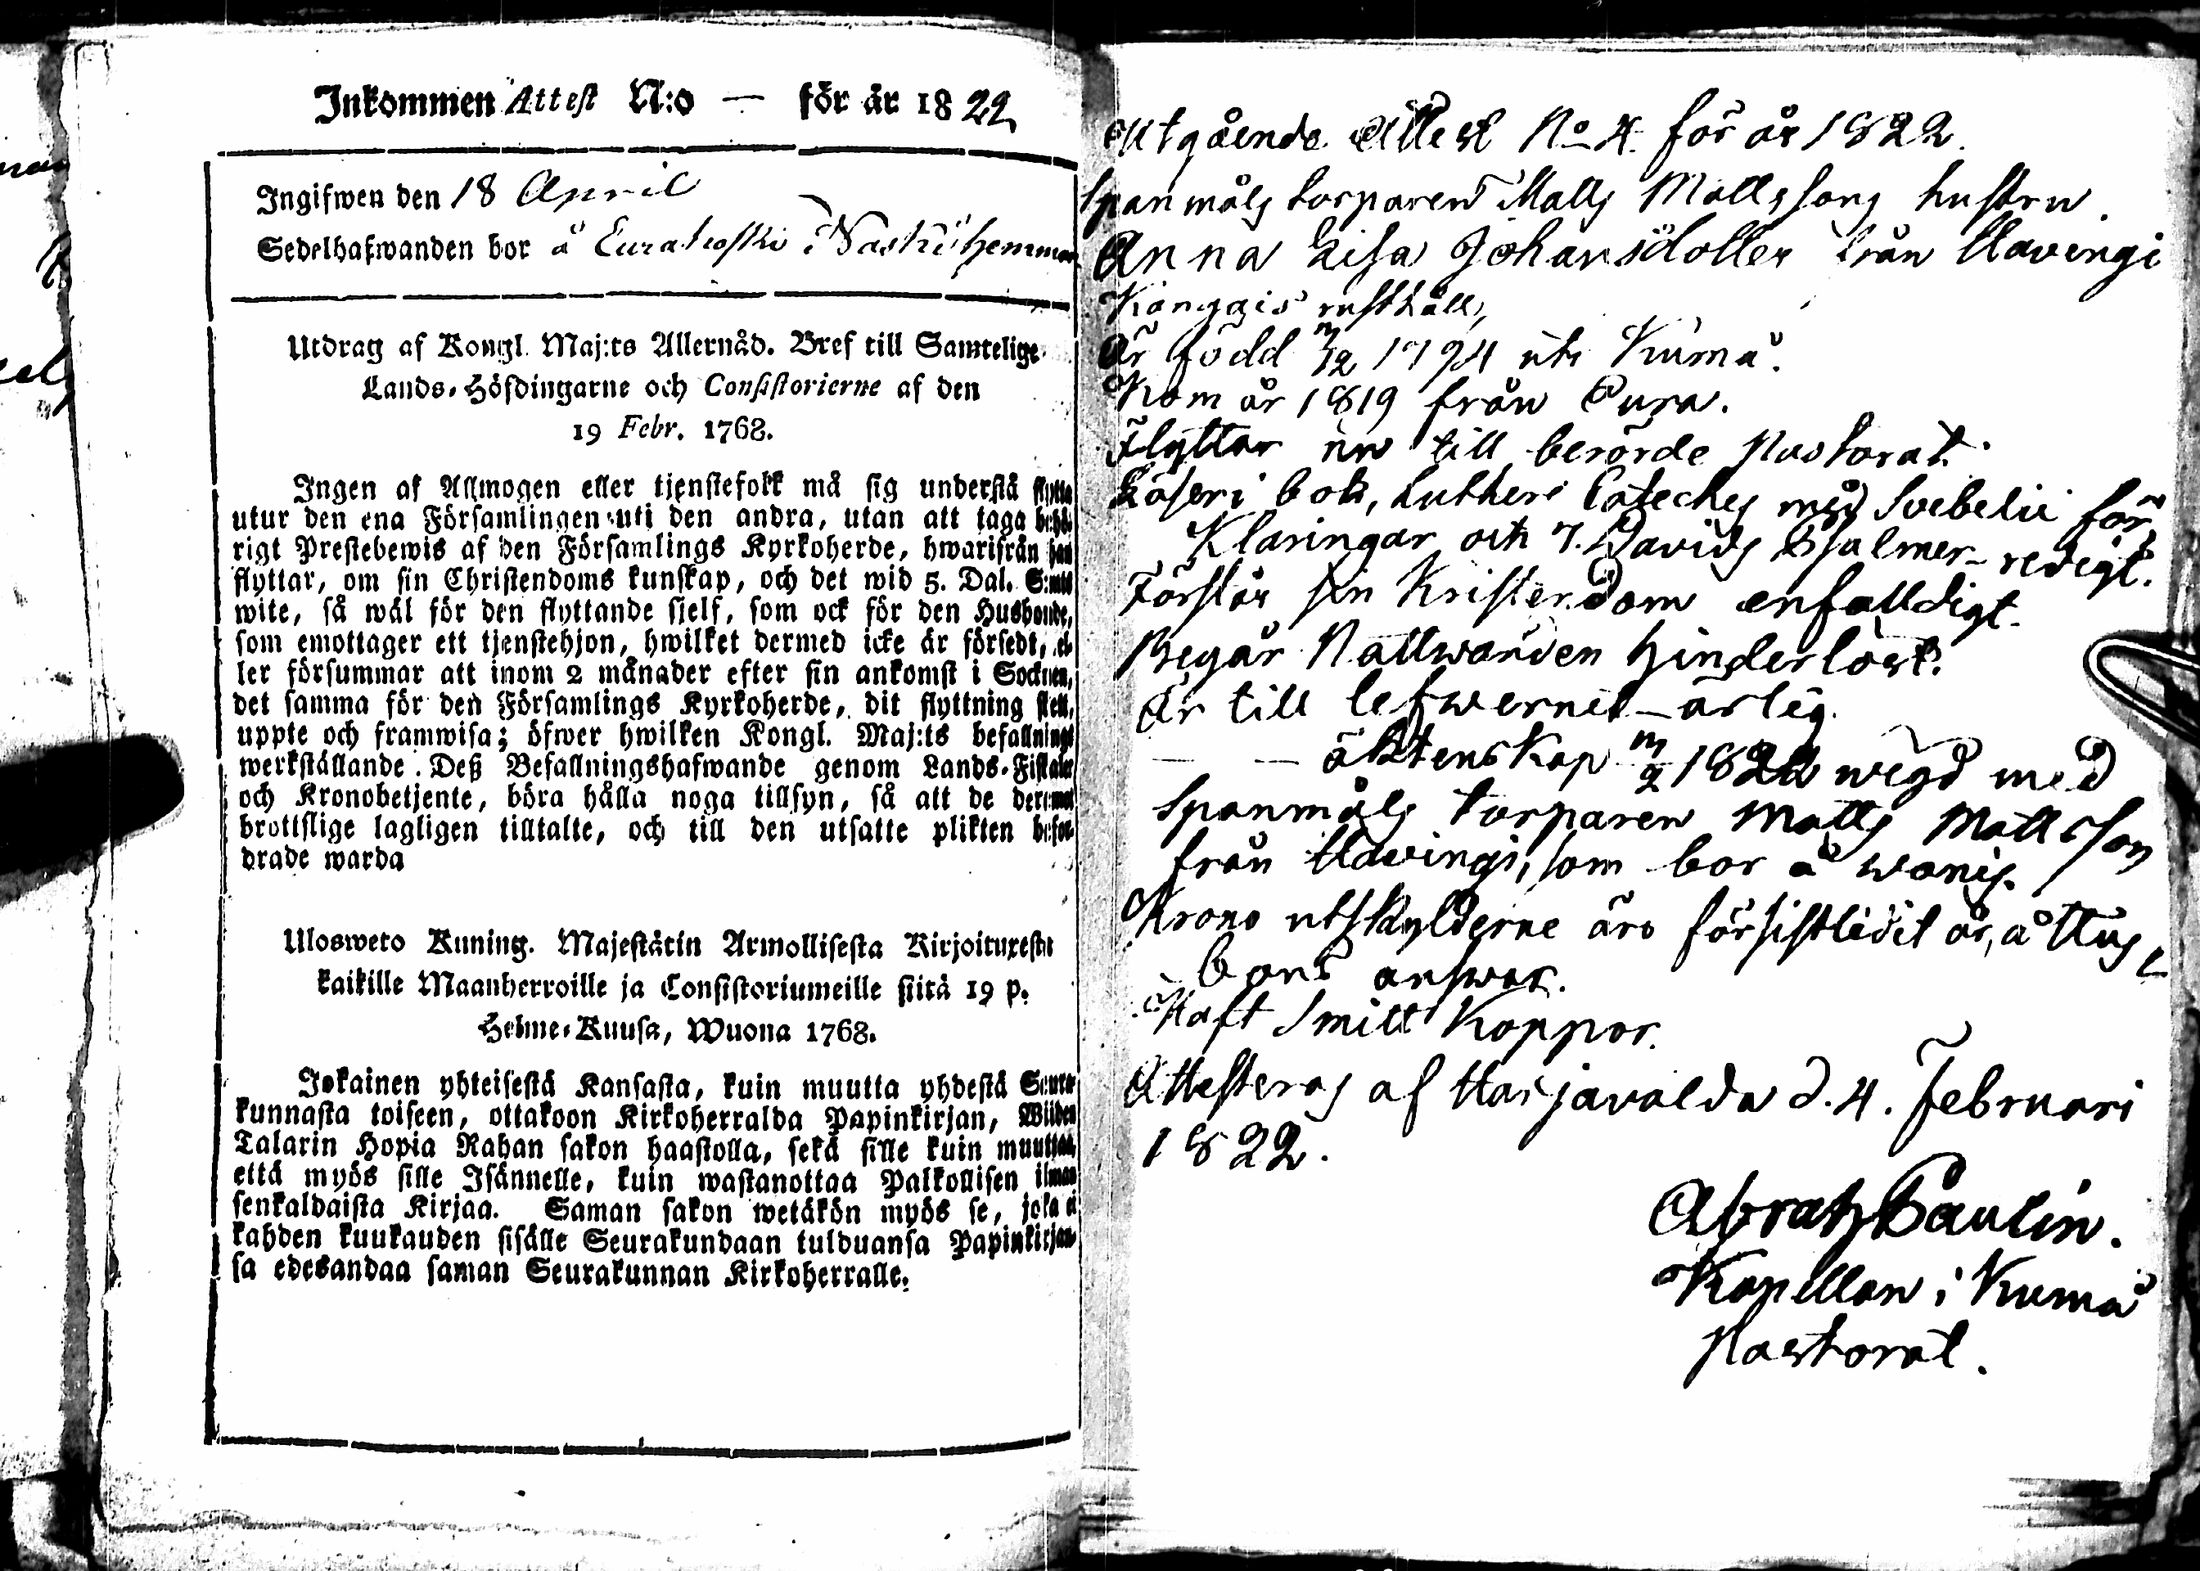 Inkommen Attest N:o — för år 1822
Ingifwen den 18 April
Sedelhafwanden bor å Eurakoski i Naski hemman
Utdrag af Kongl. Maj:ts Allernåd. Bref till Samtelige
Lands-Höfdingarne och Consistorierne af den
19 Febr. 1768.
Ingen af Allmogen eller tjenstefolk må sig understå flytta
utur den ena Församlingen uti den andra, utan att taga behö-
rigt Prestebewis af den Församlings Kyrkoherde, hwarifrån han
flyttar, om sin Christendoms kunskap, och det wid 5. Dal. S:mts
wite, så wäl för den flyttande sjelf, som ock för den Husbonde,
som emottager ett tjenstehjon, hwilket dermed icke är försedt, el-
ler försummar att inom 2 månader efter sin ankomst i Socknen,
det samma för den Församlings Kyrkoherde, dit flyttning skett,
uppte och framwisa; öfwer hwilken Kongl. Maj:ts befallnings
werkställande Deß Befallningshafwande genom Lands-Fiskaler
och Kronobetjente, böra hålla noga tillsyn, så att de deremot
brottslige lagligen tilltalte, och till den utsatte plikten befor-
drade warda
Ulosweto Kuning. Majestätin Armollisesta Kirjoituxesta
kaikille Maanherroille ja Consistoriumeille siitä 19 p.
Helme-Kuusa, Wuona 1768.
Jokainen yhteisestä Kansasta, kuin muutta yhdestä Seura-
kunnasta toiseen, ottakoon Kirkoherralda Papinkirjan, Wiiden
Talarin Hopia Rahan sakon haastolla, sekä sille kuin muuttaa,
että myös sille Isännelle, kuin wastanottaa Palkollisen ilman
senkaldaista Kirjaa. Saman sakon wetäkön myös se, joka ei
kahden kuukauden sisälle Seurakundaan tulduansa Papinkirjan-
sa edesandaa saman Seurakunnan Kirkoherralle.
Utgående Attest No 4. för år 1822.
Spanmåls torparen Matts Mattssons hustru
Anna Lisa Johansdotter från Havingi
Kånggis rusthåll,
Är född 1794 uti Kumå.
Kom år 1819 från Eura.
Flyttar nu till berörde Pastorat.
Läser i bok, Lutheri Cateches med Svebelii för-
klaringar och 7. Davids Psalmer - redigt.
Förstår sin Kristendom enfalldigt.
Begår Nattwarden hinderlöst.
Är till lefwernet - ärlig.
— — äktenskap 1822 wigd med
Spanmåls torparen Matts Mattsson
från Havingi, som bor å
Krono utskylderne äro för sistledit år, å Hus-
bonds answar.
Haft Smitt Koppor.
Attesteras af Harjavalda d. 4. Februari
1822.
Abrah Paulin.
Kapellan i Kumå
Pastorat.